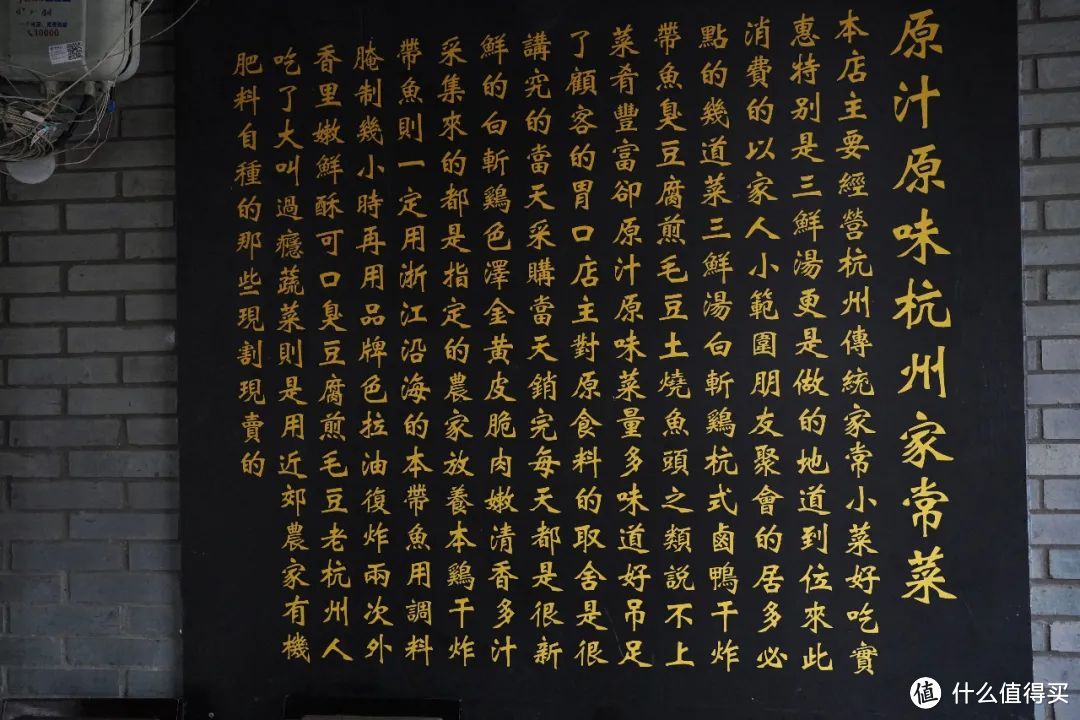 原汁原味杭州家常菜
本店主要經營杭州傳統家常小菜好吃實
惠特别是三鮮湯更是做的地道到位來此
消費的以家人小範圍朋友聚會的居多必
點的幾道菜三鮮湯白斬鷄杭式鹵鴨干炸
帶魚臭豆腐煎毛豆土燒魚頭之類說不上
菜肴豐富卻原汁原味菜量多味道好吊足
了顧客的胃口店主對原食料的取舍是很
講究的當天采購當天銷完每天都是很新
鮮的白斬鷄色澤金黃皮脆肉嫩清香多汁
采集來的都是指定的農家放養本鷄干炸
帶魚則一定用浙江沿海的本帶魚用調料
腌制幾小時再用品牌色拉油復炸兩次外
香里嫩鮮酥可口臭豆腐煎毛豆老杭州人
吃了大叫過癮蔬菜則是用近郊農家有機
肥料自種的那些現割現賣的
10000
值 什么值得买